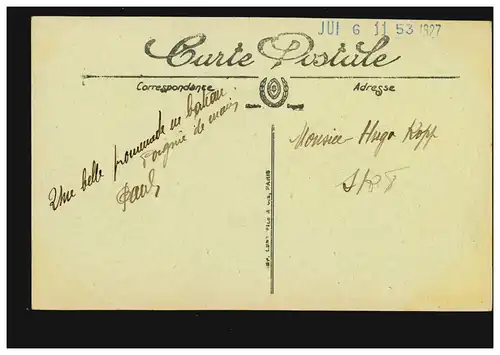 JUI 6 11 53 1927
Carte Postale
Correspondance
Adresse
Une belle promenade en bateau
Poignée de main,
Paul
Monsieur Hugo Kopp